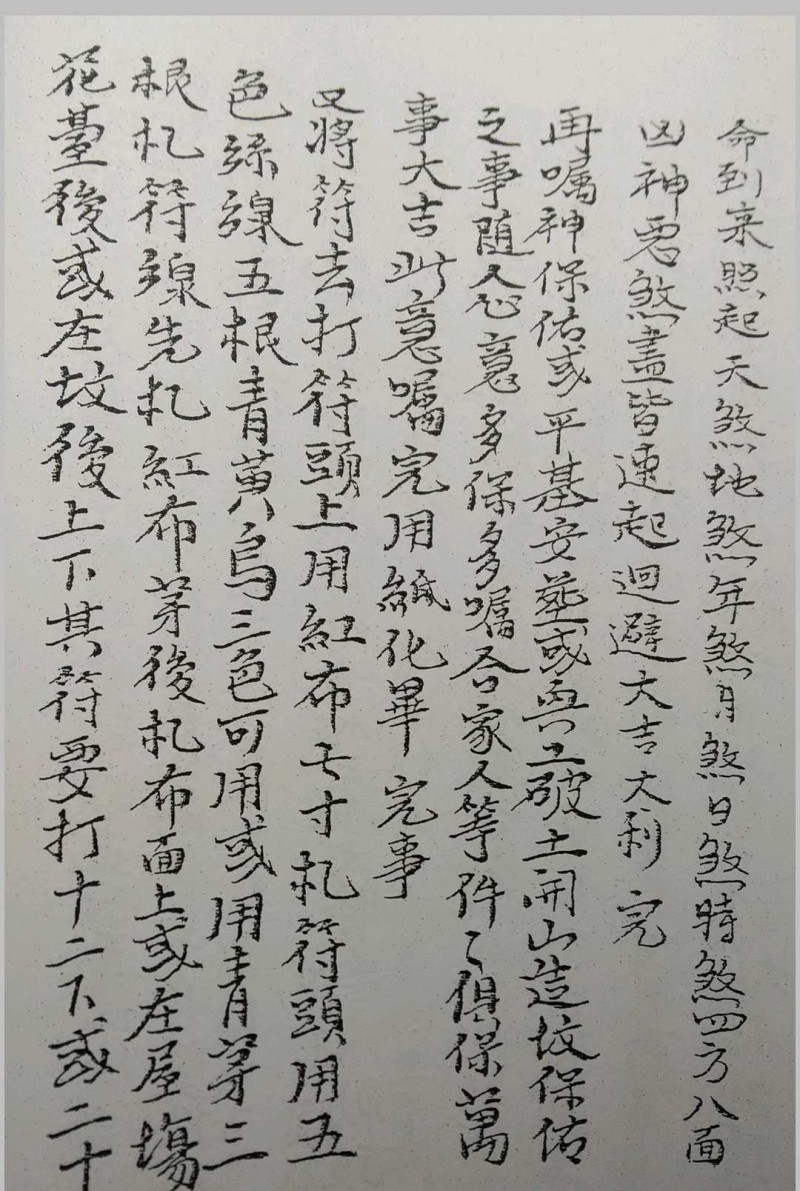 命到来照起天煞地煞年煞月煞日煞時煞四方八面
凶神惡煞盡皆速起迴避大吉大利完
再嘱神保佑或平基安葬或興工破土開山造坟保佑
之事随人心意多保多嘱合家人等件〻俱保萬
事大吉此意嘱完用紙化畢完事
又將符去打符頭上用紅布七寸札符頭用五
色絲線五根青黃烏三色可用或用青茅三
根札符線先札紅布茅後札布面上或在屋場
花臺後或在坟後上下其符要打十二下或二十